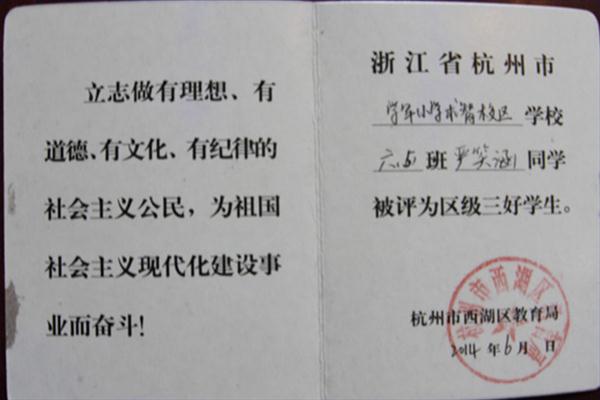 立志做有理想、有
道德、有文化、有纪律的
社会主义公民，为祖国
社会主义现代化建设事
业而奋斗！
浙江省杭州市
学军小学求智校区学校
六(5)班严笑涵同学
被评为区级三好学生。
杭州市西湖区教育局
2014年6月 日
杭州市西湖区教育局